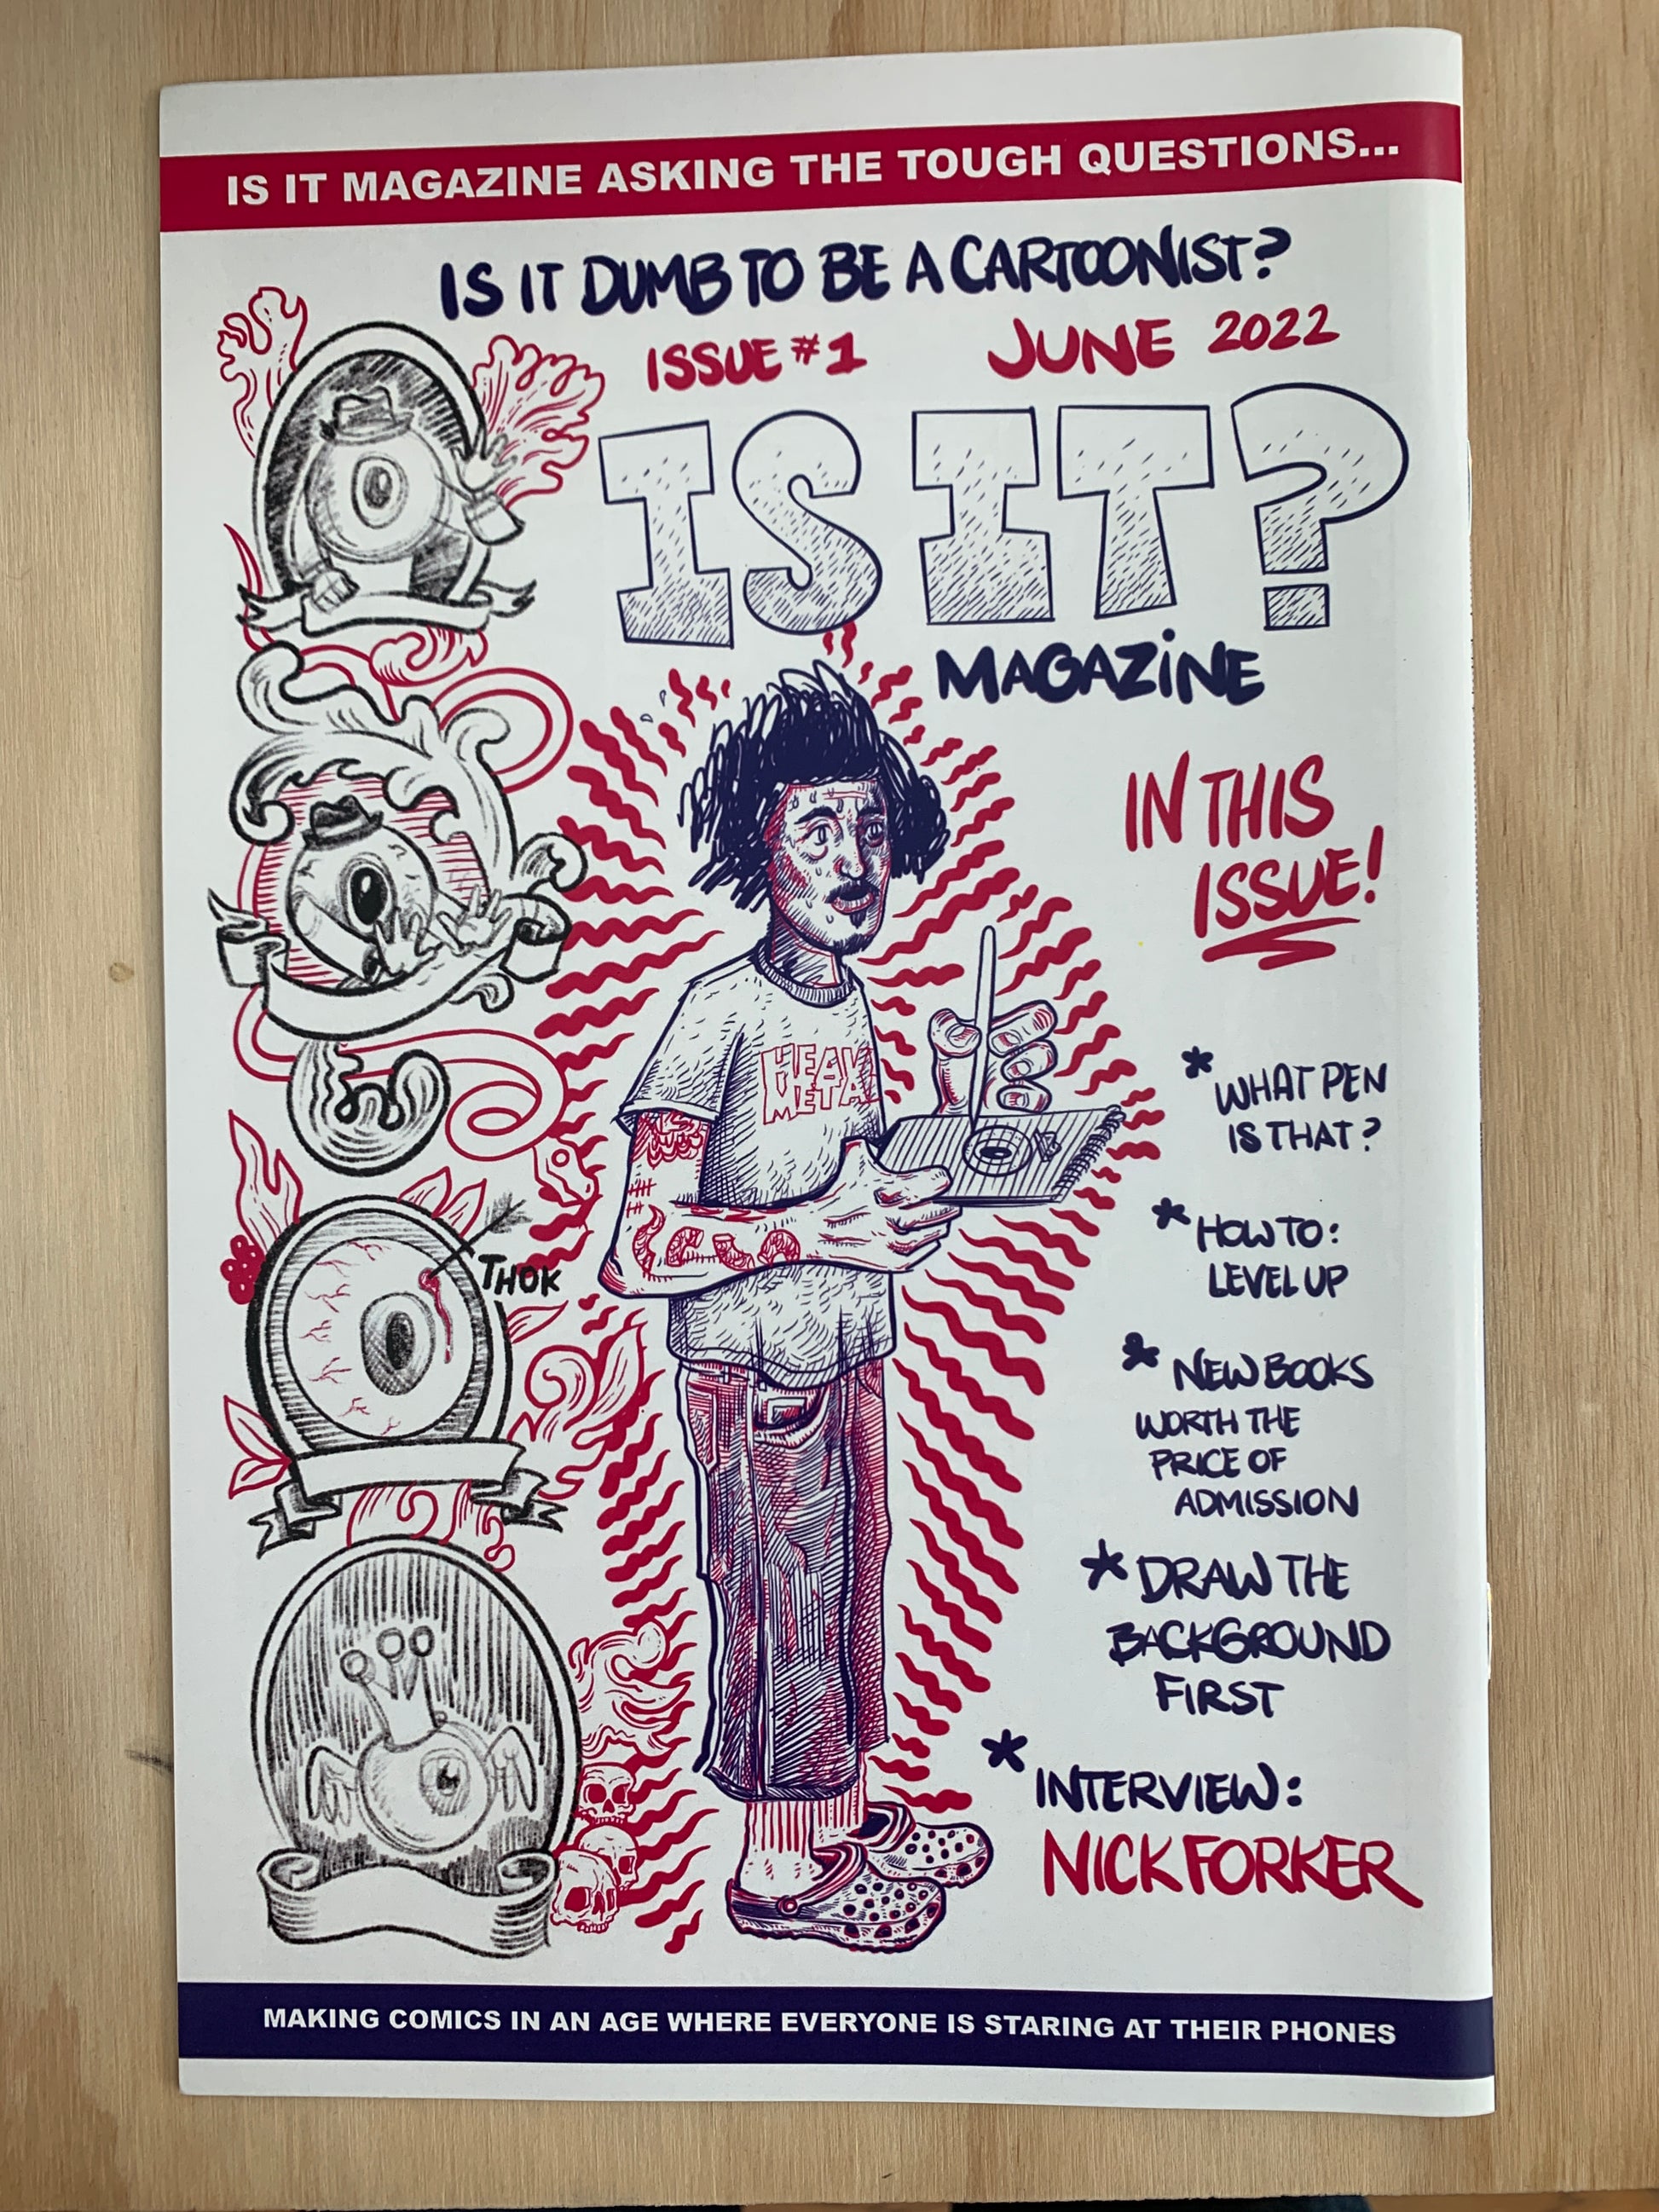 IS IT MAGAZINE ASKING THE TOUGH QUESTIONS...
IS IT DUMB TO BE A CARTOONIST?
ISSUE #1 JUNE 2022
IS IT?
MAGAZINE
IN THIS
ISSUE!
HEAV
META
THOK
* WHAT PEN
IS THAT?
* HOW TO:
LEVEL UP
* NEW BOOKS
WORTH THE
PRICE OF
ADMISSION
* DRAW THE
BACKGROUND
FIRST
* INTERVIEW:
NICK FORKER
MAKING COMICS IN AN AGE WHERE EVERYONE IS STARING AT THEIR PHONES